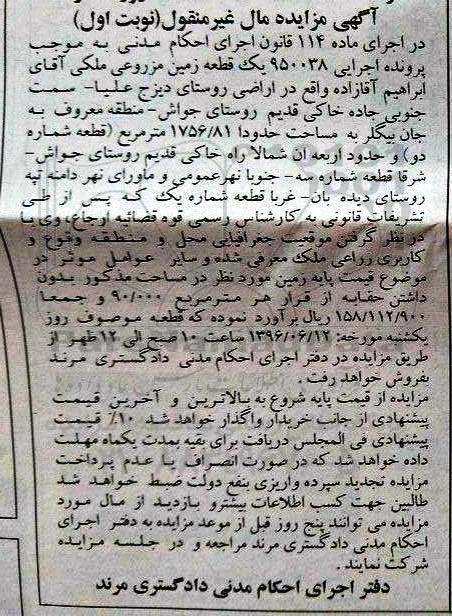 آگهی مزایده مال غیرمنقول(نوبت اول)
در اجرای ماده ۱۱۴ قانون اجرای احکام مدنی به موجب
پرونده اجرایی ۹۵۰۰۳۸ یک قطعه زمین مزروعی ملکی آقای
ابراهیم آقازاده واقع در اراضی روستای دیزج علیا- سمت
جنوبی جاده خاکی قدیم روستای جواش- منطقه معروف به
جان بیگلر به مساحت حدودا ۱۷۵۶/۸۱ مترمربع (قطعه شماره
دو) و حدود اربعه آن شمالا راه خاکی قدیم روستای جواش-
شرقا قطعه شماره سه- جنوبا نهرعمومی و ماورای نهر دامنه تپه
روستای دیده بان- غربا قطعه شماره یک که پس از طی
تشریفات قانونی به کارشناس رسمی قوه قضائیه ارجاع، وی با
در نظر گرفتن موقعیت جغرافیایی محل و منطقه وقوع و
کاربری زراعی ملک معرفی شده و سایر عوامل موثر در
موضوع قیمت پایه زمین مورد نظر در مساحت مذکور بدون
داشتن حقابه از قرار هر مترمربع ۹۰/۰۰۰ و جمعا
۱۵۸/۱۱۲/۹۰۰ ریال برآورد نموده که قطعه موصوف روز
یکشنبه مورخه: ۱۳۹۶/۰۶/۱۲ ساعت ۱۰ صبح الی ۱۲ ظهر از
طریق مزایده در دفتر اجرای احکام مدنی دادگستری مرند
بفروش خواهد رفت.
مزایده از قیمت پایه شروع به بالاترین و آخرین قیمت
پیشنهادی از جانب خریدار واگذار خواهد شد ۱۰٪ قیمت
پیشنهادی فی المجلس دریافت برای بقیه بمدت یکماه مهلت
داده خواهد شد که در صورت انصراف یا عدم پرداخت
مزایده تجدید سپرده واریزی بنفع دولت ضبط خواهد شد
طالبین جهت کسب اطلاعات بیشترو بازدید از مال مورد
مزایده می توانند پنج روز قبل از موعد مزایده به دفتر اجرای
احکام مدنی دادگستری مرند مراجعه و در جلسه مزایده
شرکت نمایند.
دفتر اجرای احکام مدنی دادگستری مرند